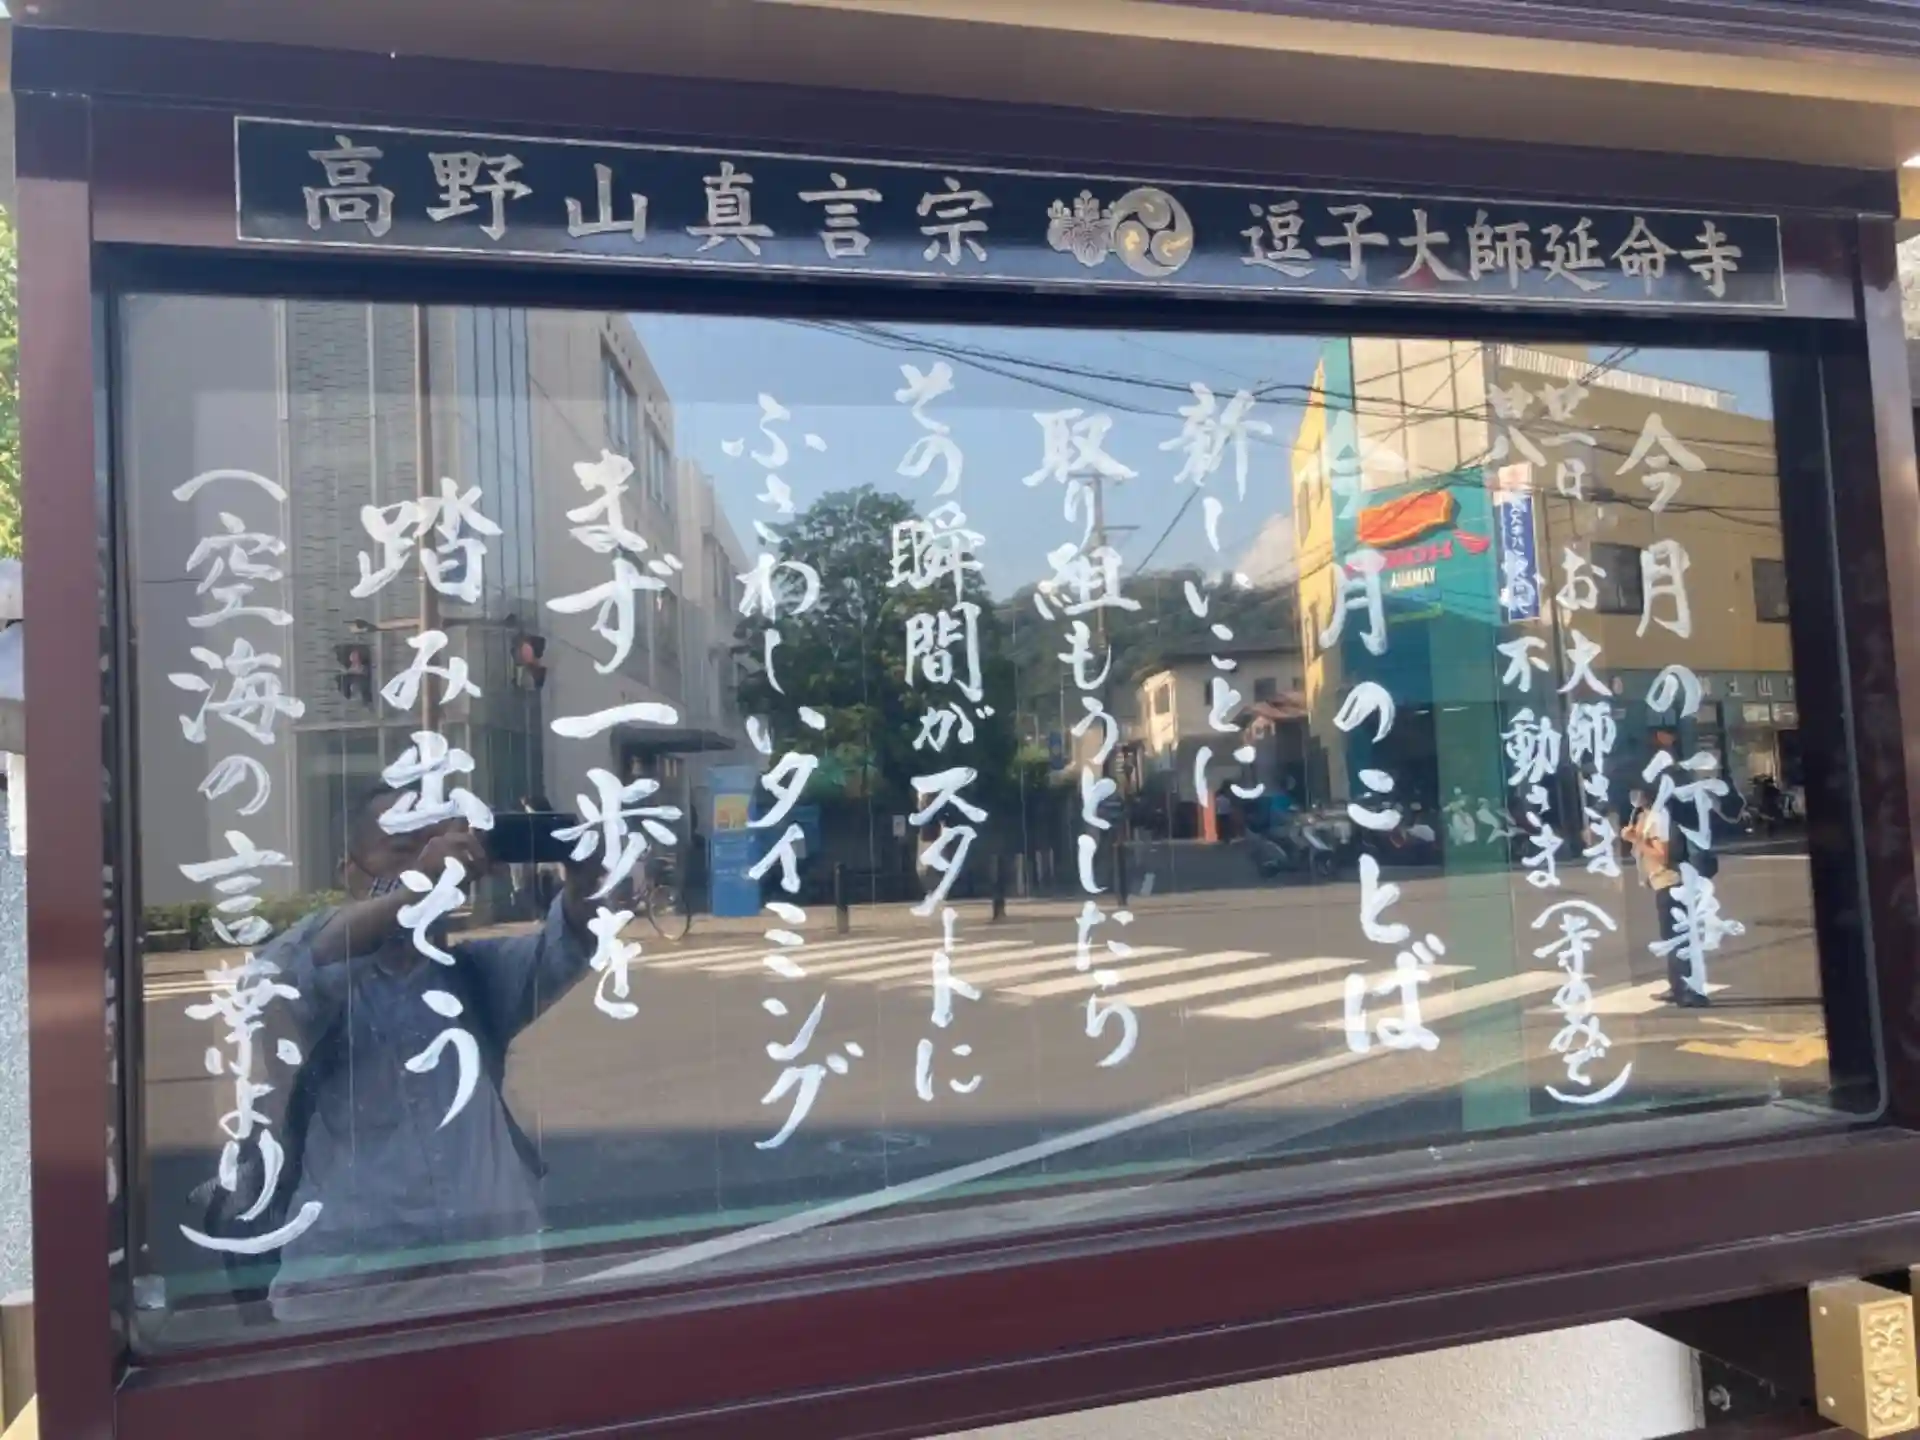 高野山真言宗 逗子大師延命寺
今月の行事
廿一日 お大師さま
廿八 不動さま(寺のみで)
今月のことば
新しいことに
取り組もうとしたら
その瞬間がスタートに
ふさわしいタイミング
まず一歩を
踏み出そう
(空海の言葉より)